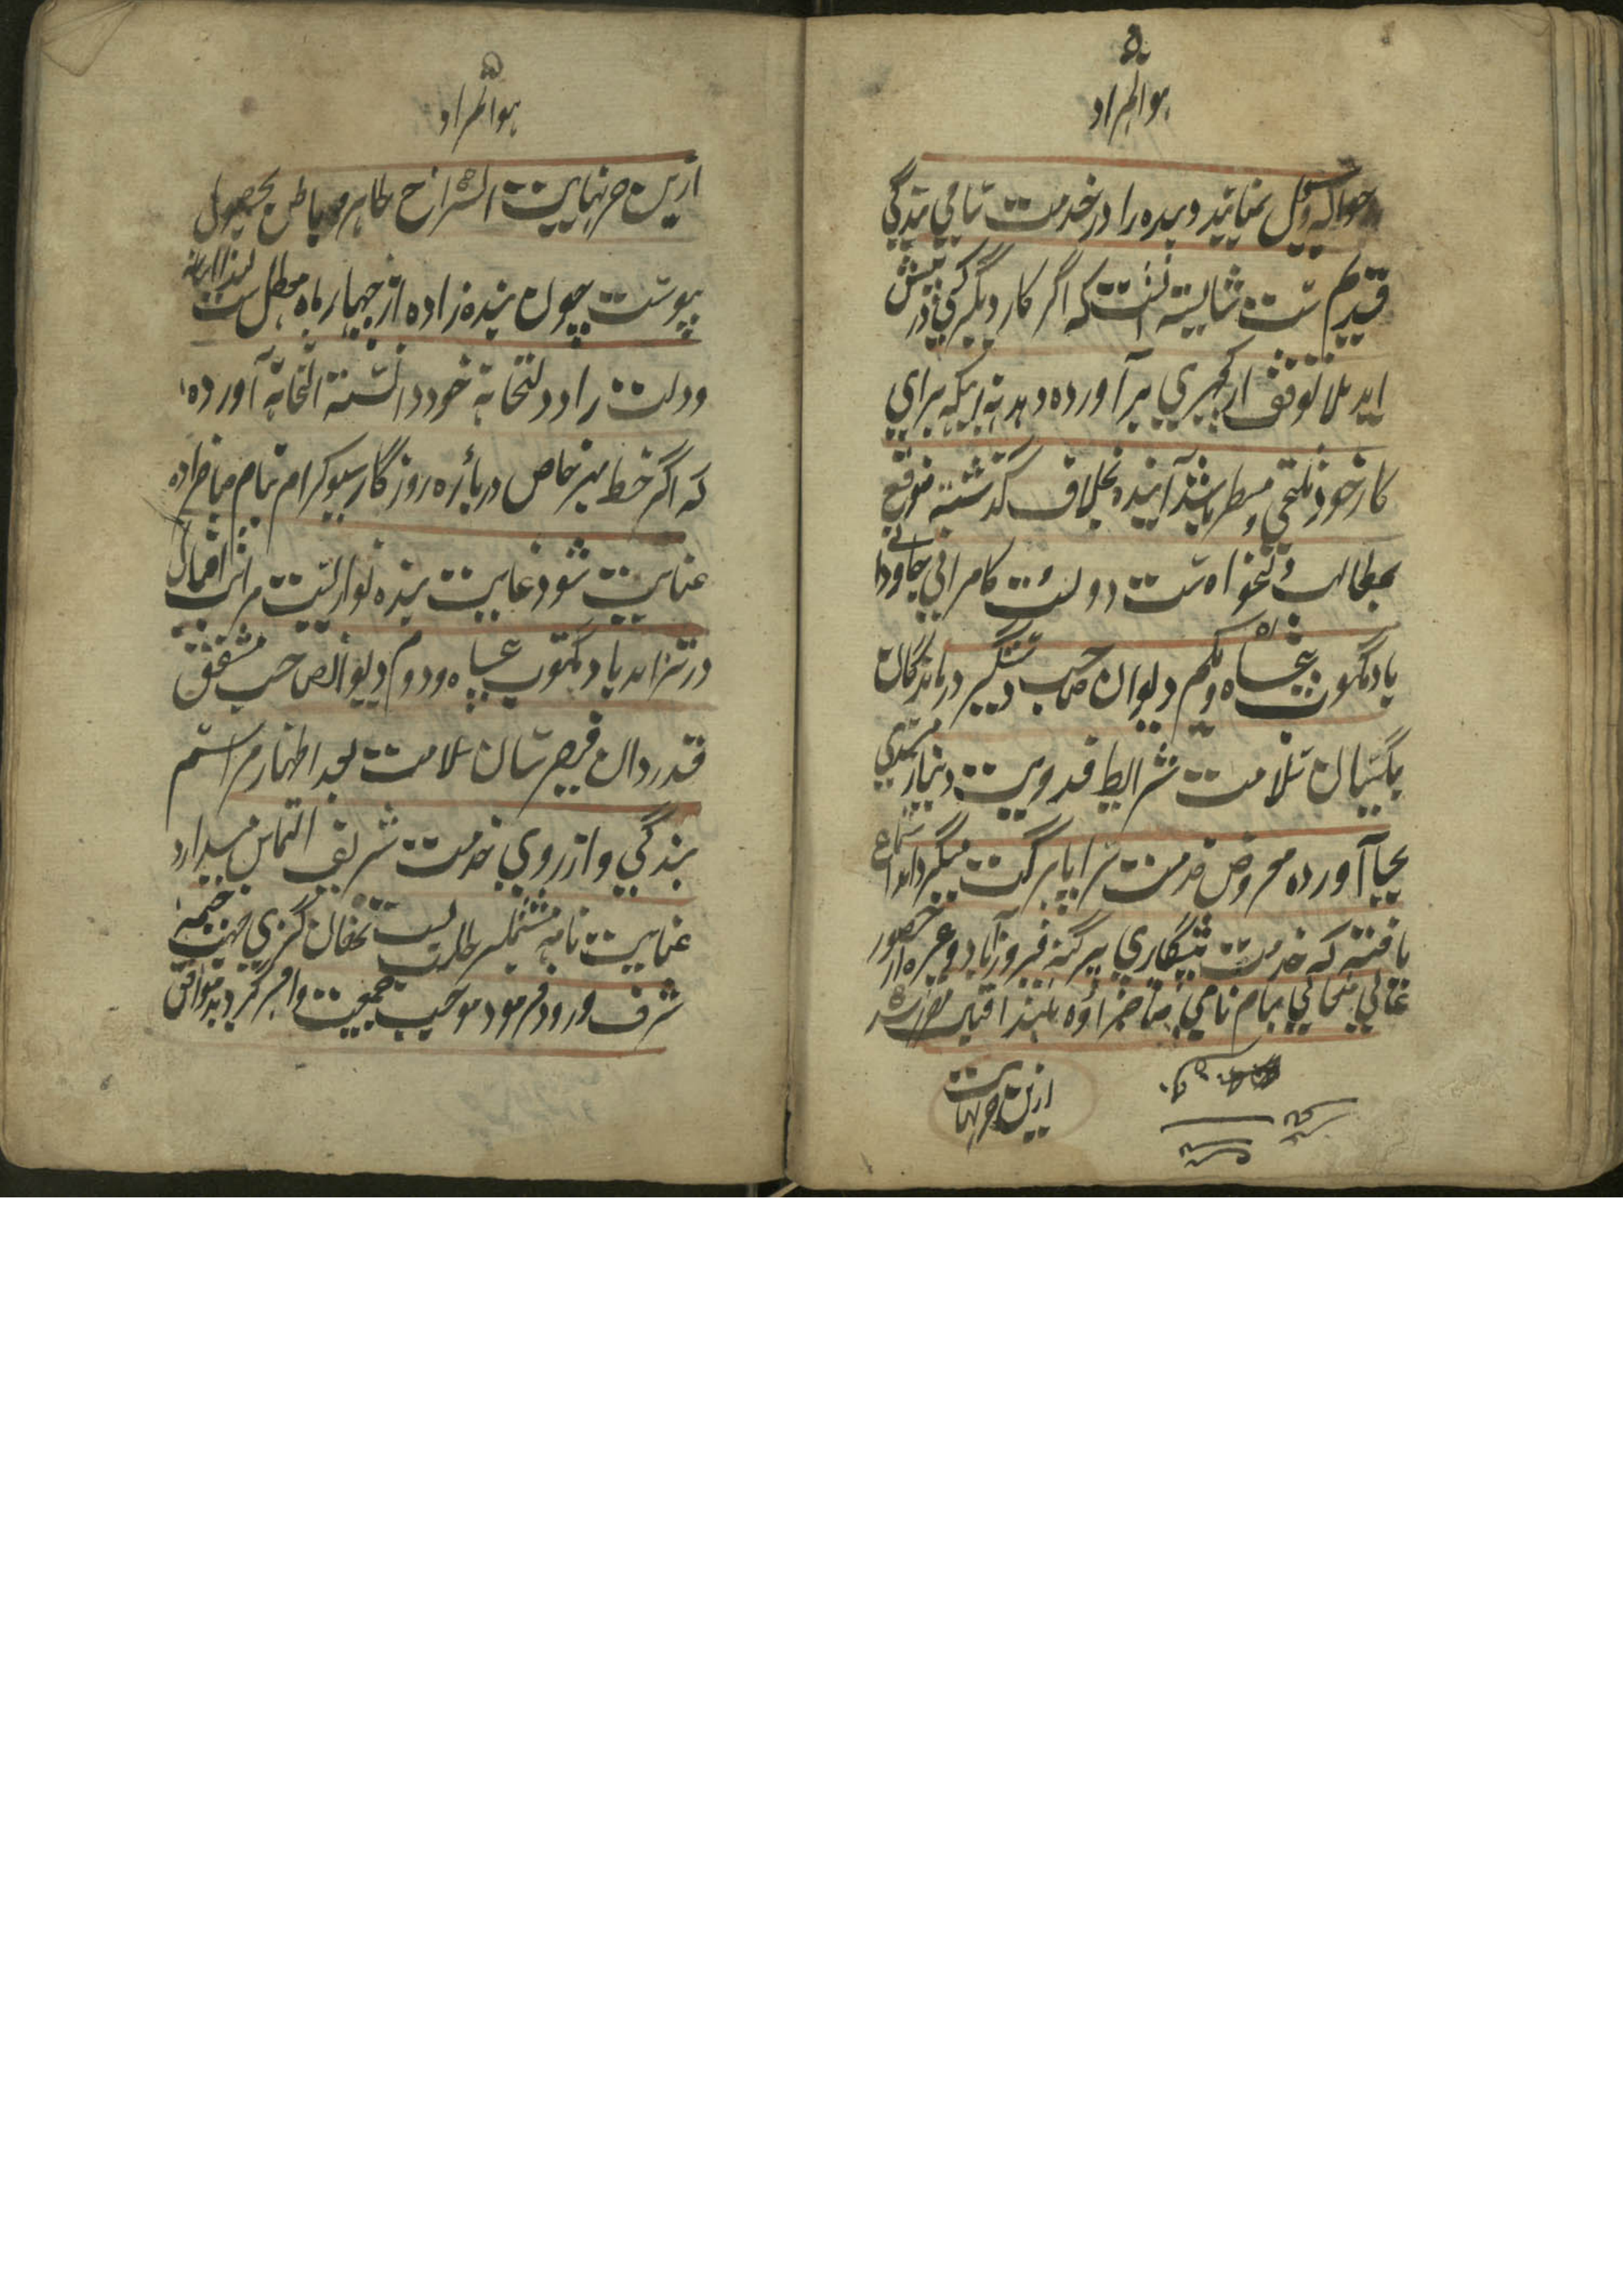 هو المراد
حواله وکیل نمایند و بنده را در خدمت سامی بندگی
قدیم ست شایسته آنست که اگر کار دیگر کسی در پیش
آید بلا توقف از کچهری برآورده دهد نه اینکه برای
کار خود ملتجی و مضطر باشد آینده بخلاف گذشته متوقع
بمطالب دلخواه ست دولت و کامرانی جاودانی
باد مکتوب پنجاه و یکم دیوان صاحب دستگیر درماندگان
بیکسان سلامت شرایط فدویت و نیازمندی
بجا آورده معروض خدمت سراپا برکت میگرداند استماع
یافته که خدمت پیشکاری پرگنه فیروزآباد وغیره از حضور
عالی متعالی بنام نامی صاحبزاده بلند اقبال مقرر شد
ازین خبر نهایت
هو المراد
ازین خبر نهایت انشراح ظاهر و باطن بحصول
پیوست چون بنده زاده از چهار ماه معطل ست لهذا
دولت را دولتخانه خود دانسته التجا آورده
که اگر خط مهر خاص درباره روزگار سیوکرام بنام صاحبزاده
عنایت شود غایت بنده نوازیست مراتب اقبال
در تزاید باد مکتوب پنجاه و دوم دیوان صاحب مشفق
قدردان فیض رسان سلامت بعد اظهار مراسم
بندگی و آرزوی خدمت شریف التماس میدارد
عنایت نامه مشتمل بر طلب بست تهان گزی جهت خیمه
شرف ورود فرمود موجب جمعیت وافر گردید موافق